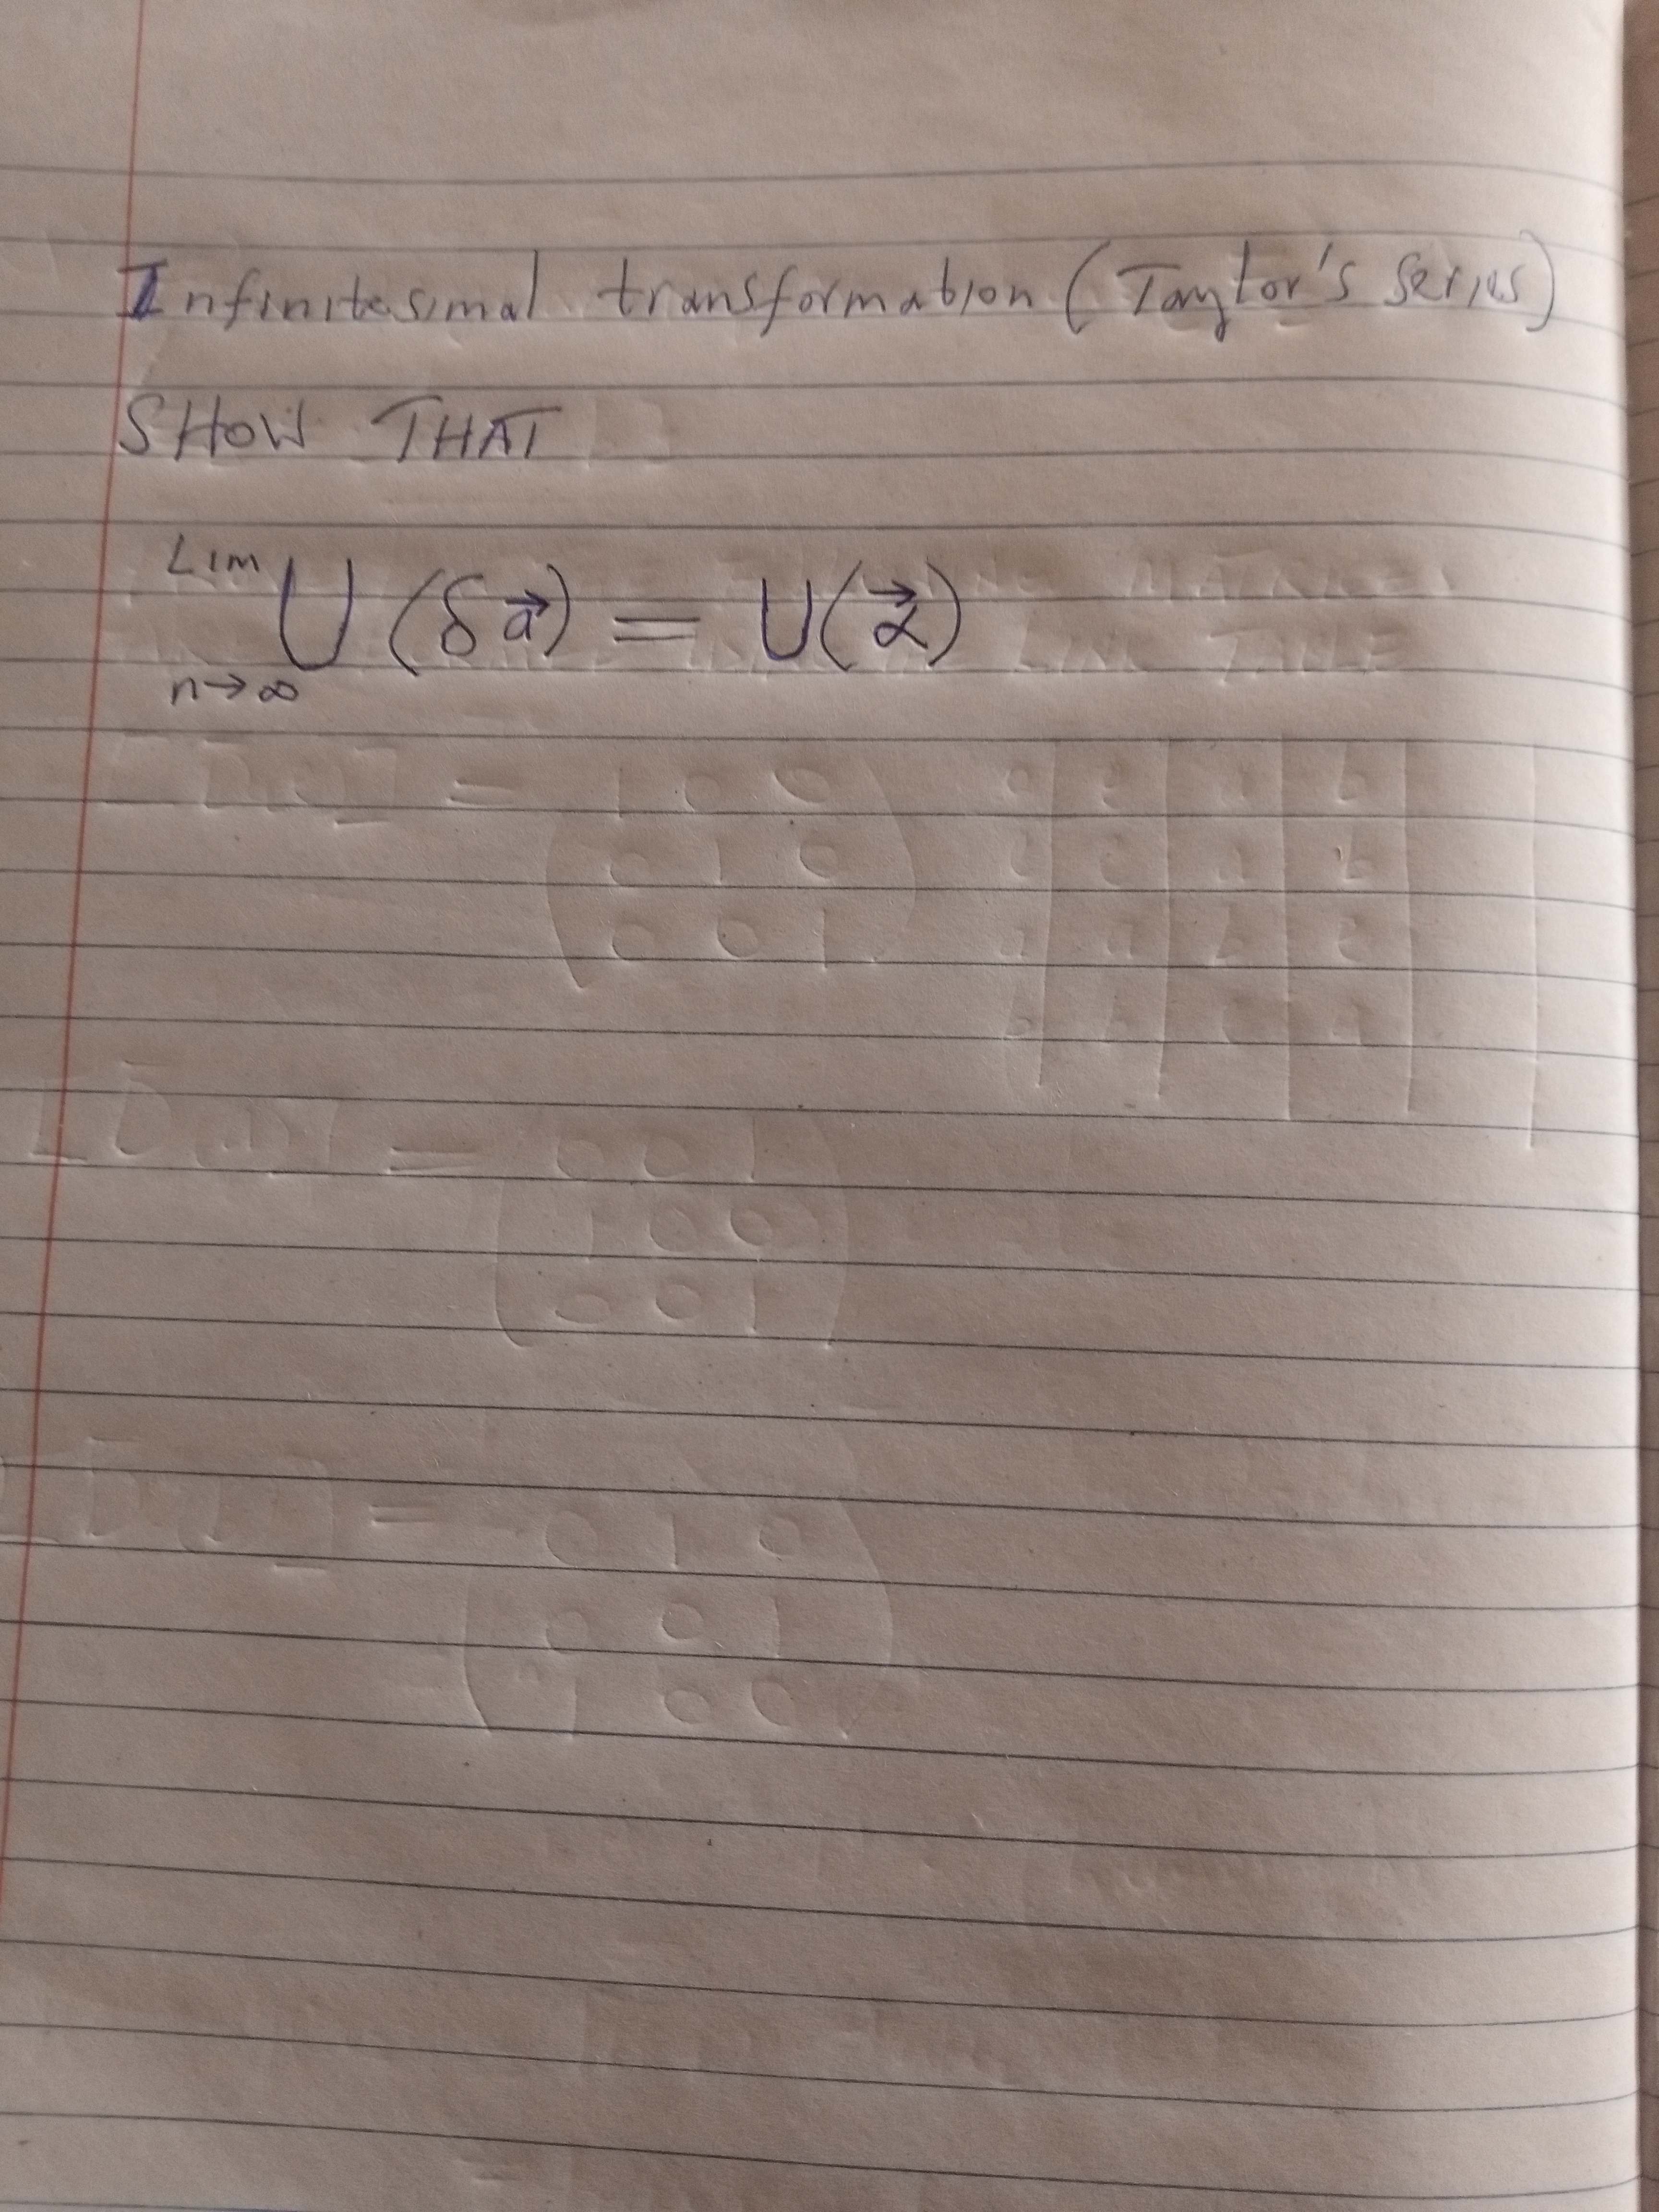 Infinitesimal transformation (Taylor's series)
SHOW THAT
Lim U (δa⃗) = U(α⃗)
n→∞